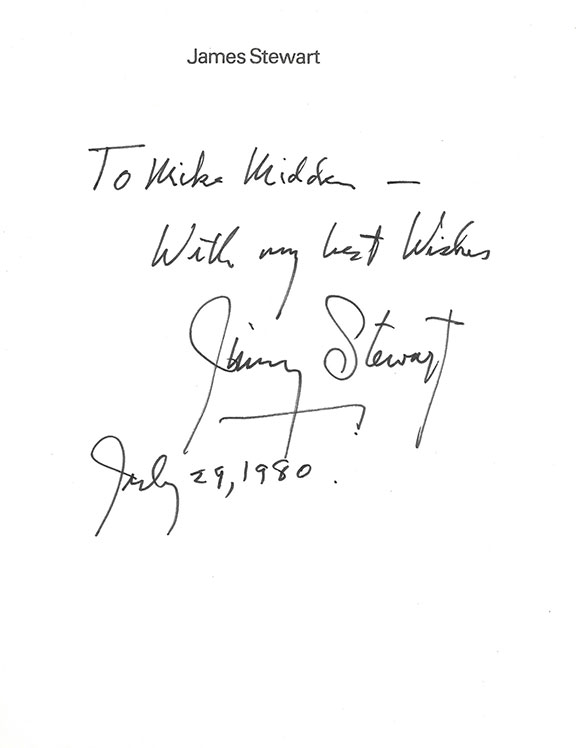 James Stewart
To Mike Midden —
With my best Wishes
Jimmy Stewart
July 29, 1980.